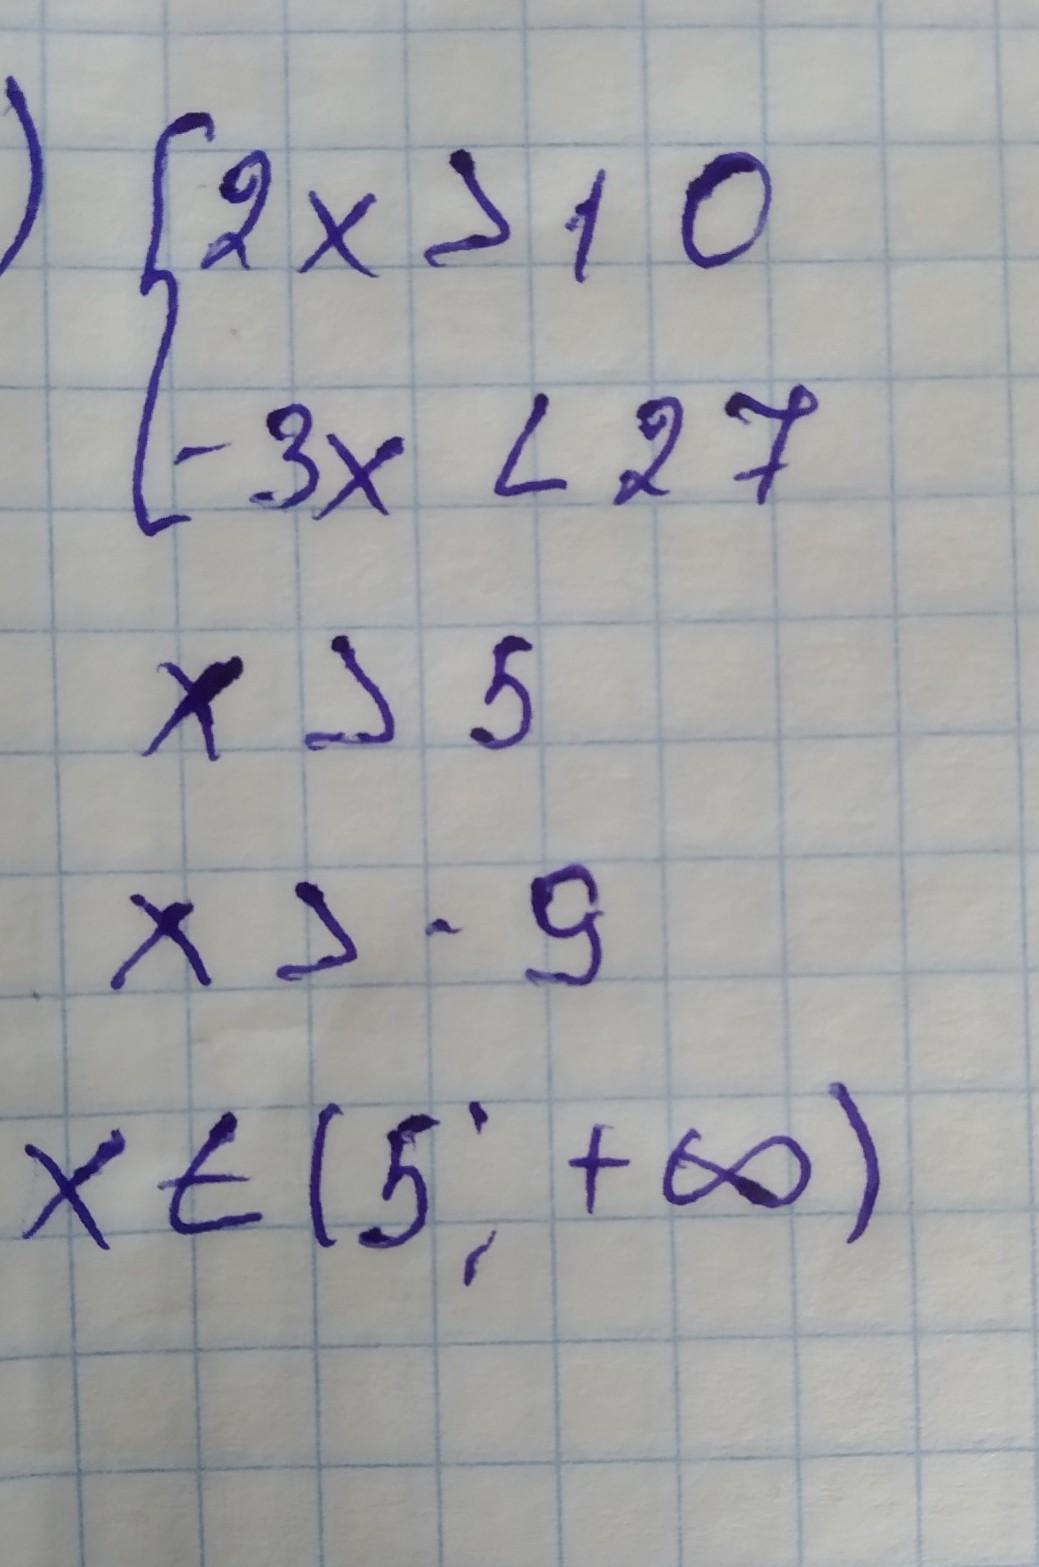 ) { 2x > 10
- 3x < 27
x > 5
x > - 9
x ∈ (5; +∞)